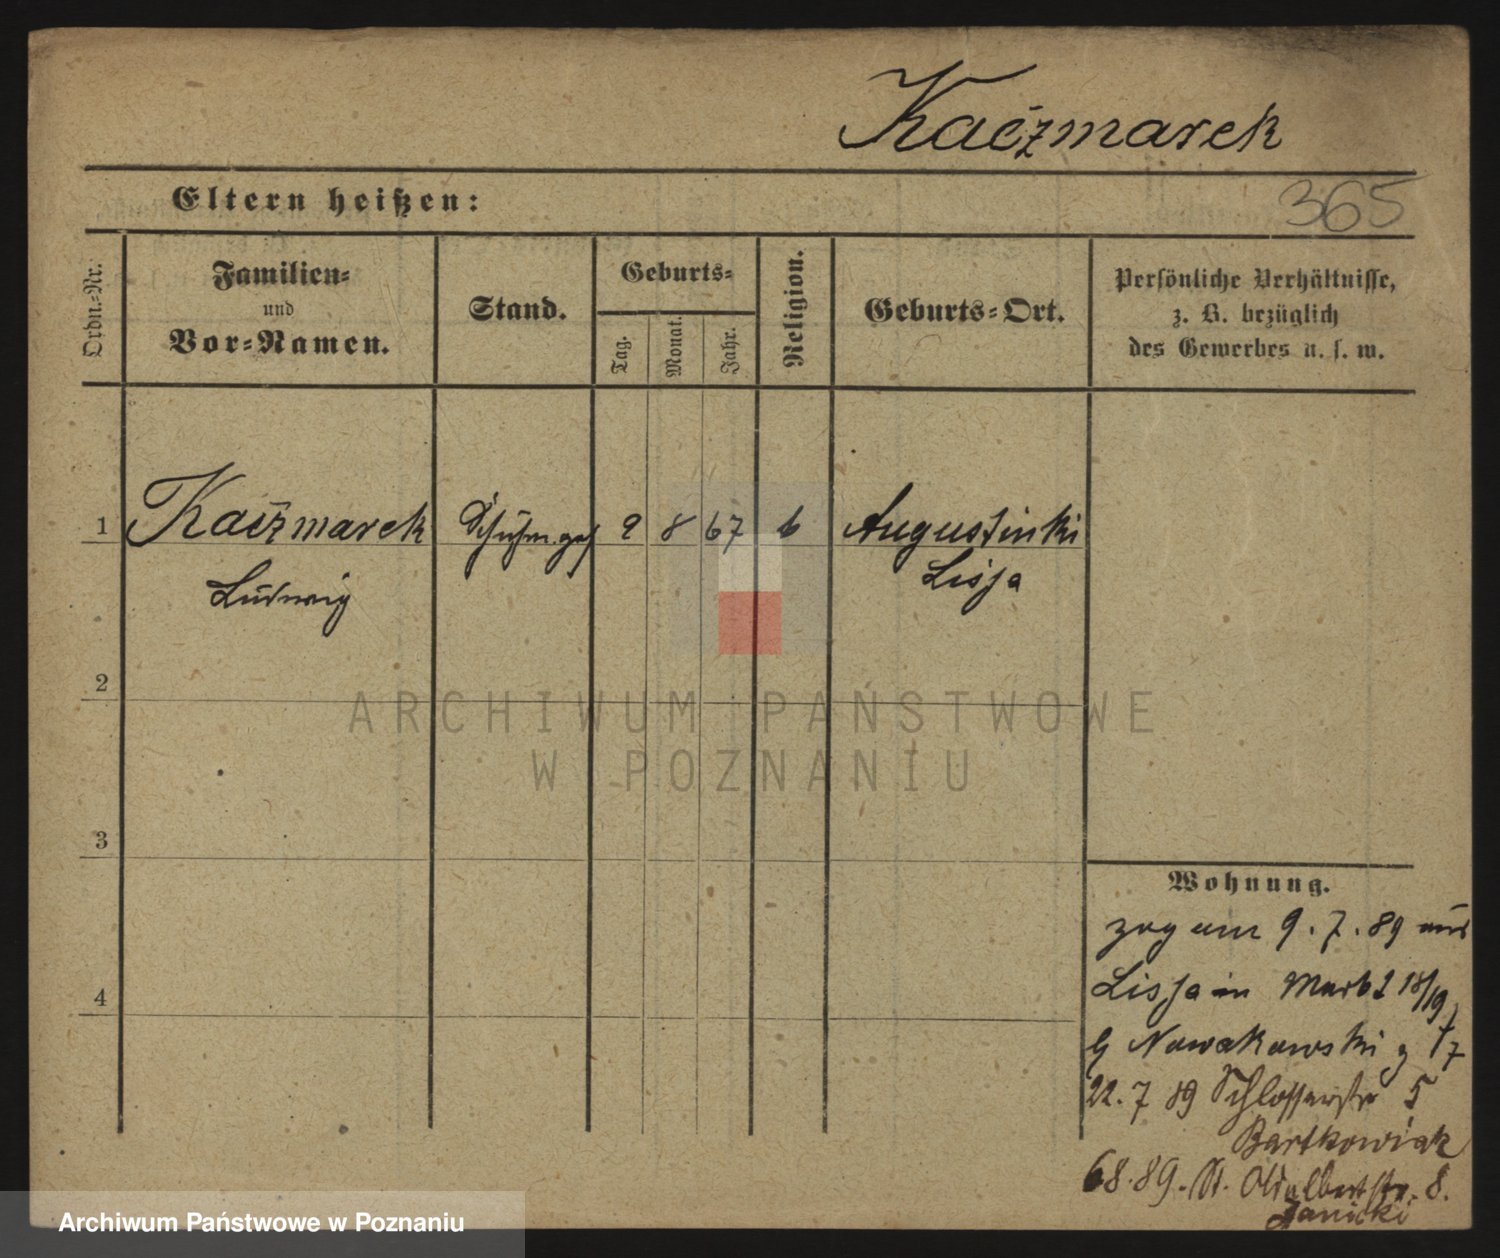 Kaczmarek
Eltern heißen:
365
Ordn.-Nr.
Familien-
und
Vor-Namen.
Stand.
Geburts-
Tag.
Monat.
Jahr.
Religion.
Geburts-Ort.
Persönliche Verhältnisse,
z. B. bezüglich
des Gewerbes u. s. w.
1
Kaczmarek
Ludwig
Schuhm. ges
9
8
67
k
Augustinki
Lissa
2
ARCHIWUM PAŃSTWOWE
W POZNANIU
3
4
Wohnung.
zog am 9. 7. 89 aus
Lissa in Markt 18/19
b Nowakowski
22. 7 89 Schlosserstr 5
Bartkowiak
6 8. 89. St. Adalbertstr. 8.
Janicki
Archiwum Państwowe w Poznaniu